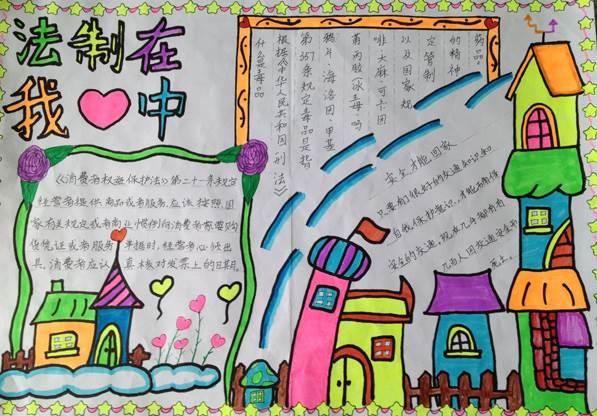 法制在
我中
什么是毒品
根据《中华人民共和国刑法》
第357条规定毒品是指
鸦片、海洛因、甲基
苯丙胺(冰毒)、吗
啡、大麻、可卡因
以及国家规
定管制
的精神
药品。
《消费者权益保护法》第二十一条规定
经营者提供商品或者服务应该按照国
家有关规定或者商业惯例向消费者索要购
货凭证或者服务单据时,经营者必须出
具,消费者应认真核对发票上的日期。
安全才能回家
只要有很好的交通知识和
自我保护意识,才能拥有
安全的交通。现在几乎都有
几万人因交通安全而
死亡。